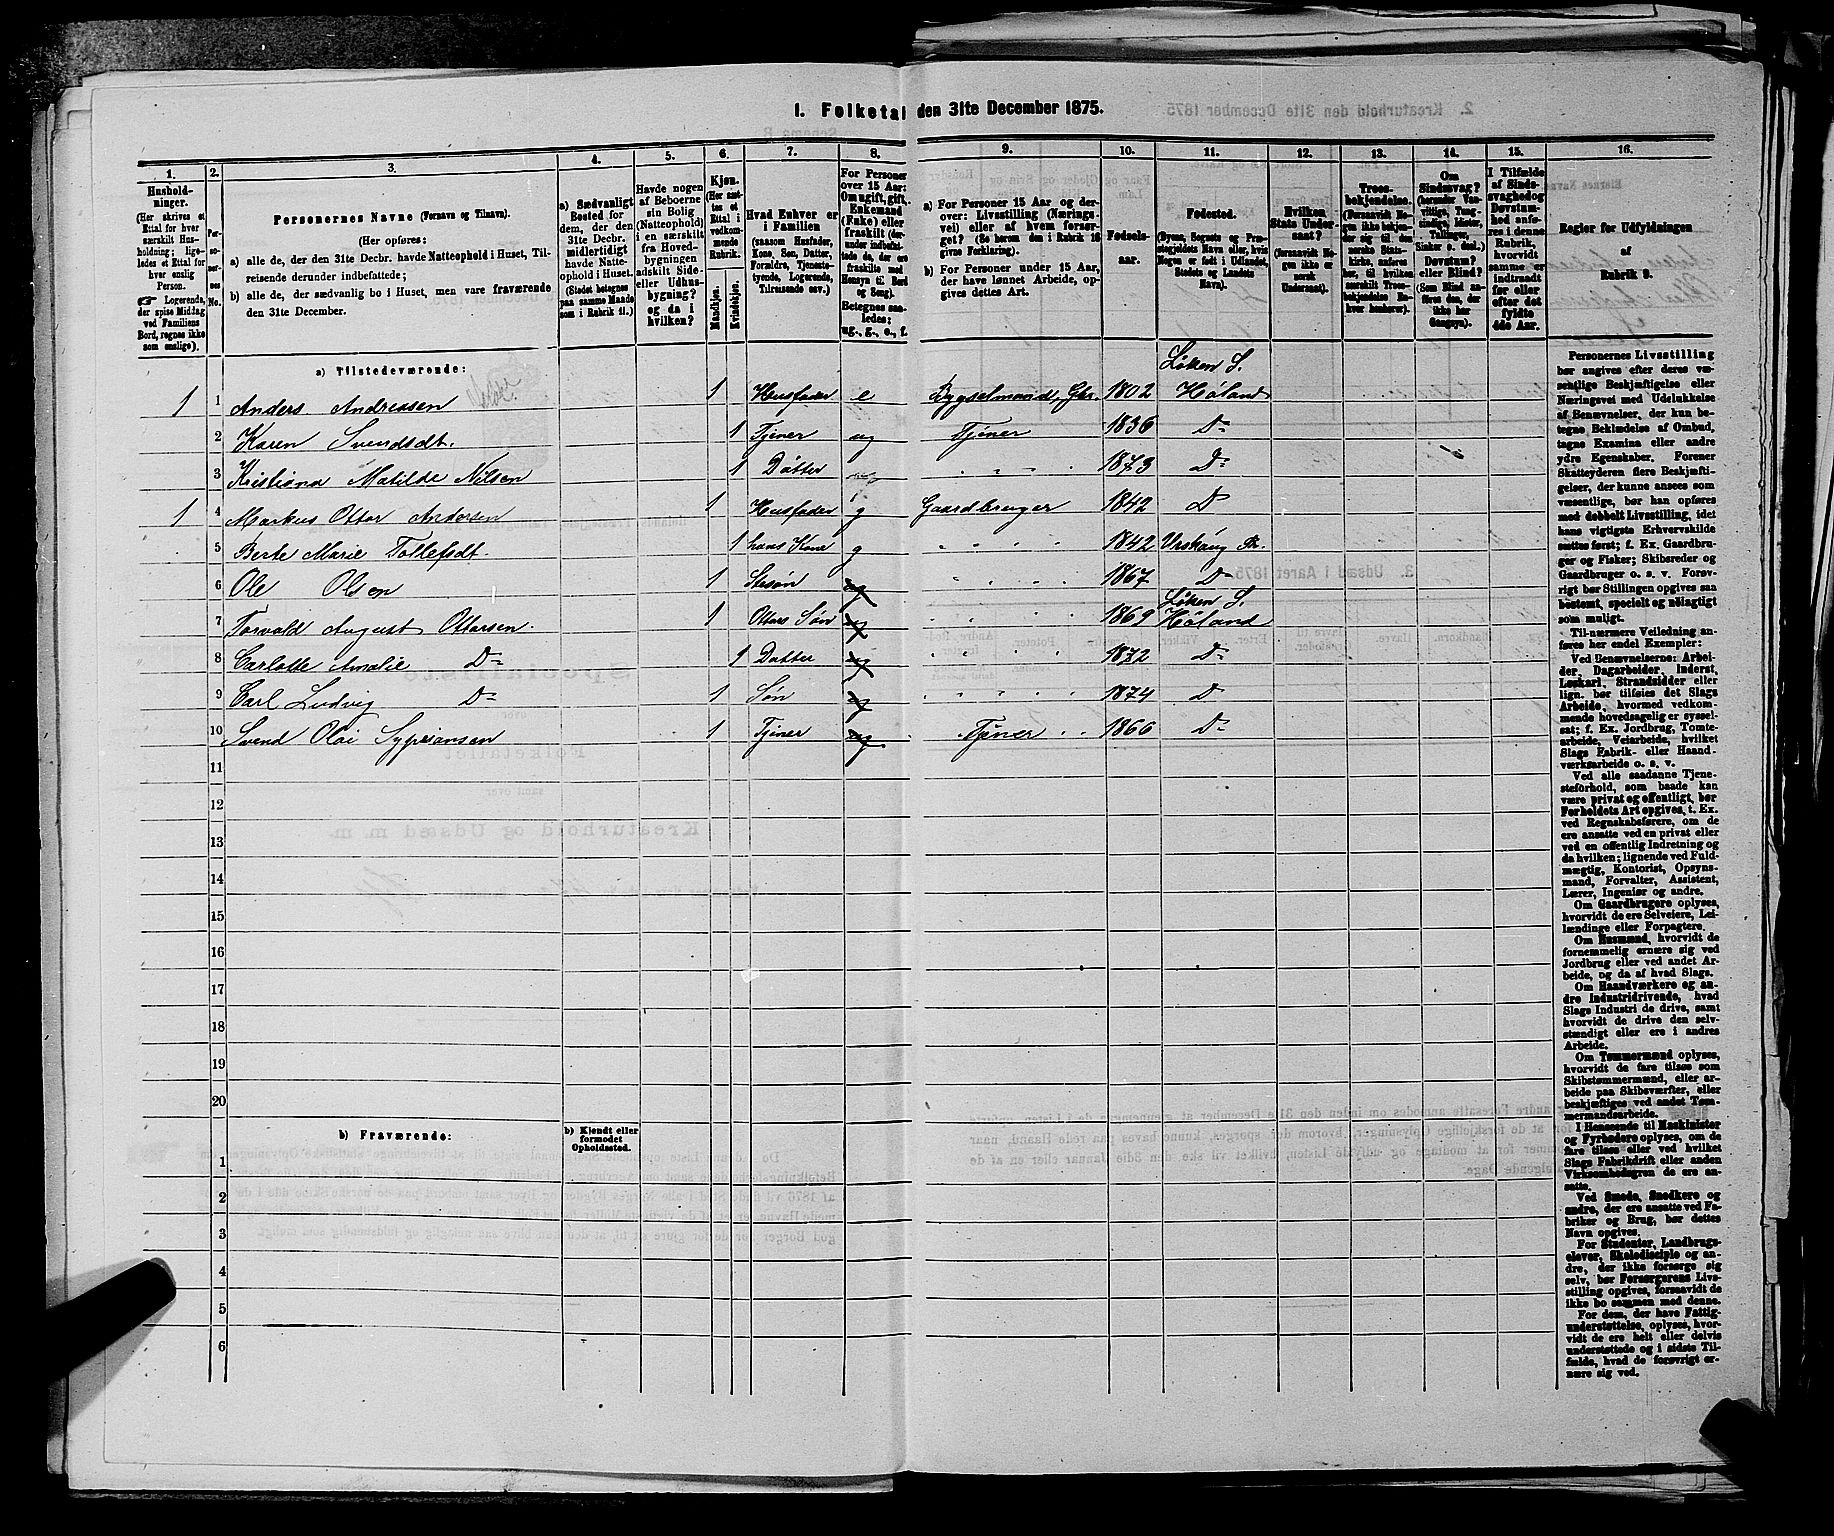 1. Folketal den 31te December 1875.
1. 2. 3. 4. 5. 6. 7. 8. 9. 10. 11. 12. 13. 14. 15. 16.
Hushold-
ninger.
(Her skrives et
Ettal for hver
særskilt Hus-
holdning; lige-
ledes et Ettal for
hver enslig
Person.
Logerende,
der spise Middag
ved Familiens
Bord, regnes ikke
som enslige).
Per-
so-
ner-
nes
No.
Personernes Navne (Fornavn og Tilnavn).
(Her opføres:
a) alle de, der den 31te Decbr. havde Natteophold i Huset, Til-
reisende derunder indbefattede;
b) alle de, der sædvanlig bo i Huset, men vare fraværende
den 31te December.
a) Sædvanligt
Bosted for
dem, der den
31te Decbr.
midlertidigt
havde Natte-
ophold i Huset.
(Stedet betegnes
paa samme Maade
som i Rubrik 11.)
Havde nogen
af Beboerne
sin Bolig
(Natteophold)
i en særskilt
fra Hoved-
bygningen
adskilt Side-
eller Udhus-
bygning?
og da i
hvilken?
Kjøn.
(Her sæt-
tes et
Ettal i
vedkom-
mende
Rubrik.
Mandkjøn.
Kvindekjøn.
Hvad Enhver er
i Familien
(saasom Husfader,
Kone, Søn, Datter,
Forældre, Tjeneste-
tyende, Logerende,
Tilreisende osv.)
For Personer
over 15 Aar:
Om ugift, gift,
Enkemand
(Enke) eller
fraskilt (der-
under indbefat-
tede de, der ere
fraskilte med
Hensyn til Bord
og Seng).
Betegnes saa-
ledes:
ug., g., e., f.
a) For Personer 15 Aar og der-
over: Livsstilling (Nærings-
vei) eller af hvem forsør-
get? (Se herom den i Rubrik 16
givne Forklaring).
b) For Personer under 15 Aar,
der have lønnet Arbeide, op-
gives dettes Art.
Fødsels-
aar.
Fødested.
(Byens, Sognets og Præ-
stegjeldets Navn eller, hvis
Nogen er født i Udlandet,
Stedets og Landets
Navn).
Hvilken
Stats Under-
saat?
(forsaavidt No-
gen ikke er
norsk
Undersaat).
Troes-
bekjendelse.
(Forsaavidt No-
gen ikke bekjen-
der sig til den
norske Stats-
kirke, anføres
her, til hvilken
særskilt Troes-
bekjendelse En-
hver henhører).
Om
Sindssvag?
(herunder Van-
vittige, Tung-
sindige, Idioter,
Sinker o. desl.)
Døvstum?
eller Blind?
(Som Blind an-
føres den, der
ikke har
Gangsyn).
I Tilfælde
af Sinds-
svaghed og
Døvstum-
hed anfø-
res i denne
Rubrik,
hvorvidt
samme er
indtraadt
før eller
efter det
fyldte
4de Aar.
Regler for Udfyldningen
af
Rubrik 9.
a) Tilstedeværende:
1 1 Anders Andreasen 1 Husfader e Bygselmand, Gbr. 1802 Løken S. Høland
2 Karen Svendsdt. 1 Tjener ug Tjener 1836 Do
3 Kristiana Matilde Nilsen 1 Datter " " " 1873 Do
1 4 Markus Ottar Andersen 1 Husfader g Gaardbruger 1842 Do
5 Berte Marie Tollefsdt. 1 hans Kone g " " " " 1842 Urskoug Pr.
6 Ole Olsen 1 Stesøn ug " " " " 1867 Do
7 Torvald August Ottarsen 1 Ottars Søn ug " " " 1869 Løken S. Høland
8 Carlotte Amalie Do 1 Datter ug " " " " 1872 Do
9 Carl Ludvig Do 1 Søn ug " " " " 1874 Do
10 Svend Olai Sypriansen 1 Tjener ug Tjener 1866 Do
11
12
13
14
15
16
17
18
19
20
b) Fraværende:
b) Kjendt eller
formodet
Opholdssted.
1
2
3
4
5
6
Personernes Livsstilling
bør angives efter deres væ-
sentlige Beskjæftigelse eller
Næringsvei med Udelukkelse
af Benævnelser, der kun be-
tegne Beklædelse af Ombud,
tagne Examina eller andre
ydre Egenskaber. Forener
Skatteyderen flere Beskjæfti-
gelser, der kunne ansees som
væsentlige, bør han opføres
med dobbelt Livsstilling, idet
hans vigtigste Erhvervskilde
sættes først; f. Ex. Gaardbru-
ger og Fisker; Skibsreder og
Gaardbruger o. s. v. Forøv-
rigt bør Stillingen opgives saa
bestemt, specielt og nøiagtigt
som muligt.
Til nærmere Veiledning an-
føres her endel Exempler:
Ved Benævnelserne: Arbei-
der, Dagarbeider, Inderst,
Løskarl, Strandsidder eller
lign. bør tilføies det Slags
Arbeide, hvormed vedkom-
mende hovedsagelig er syssel-
sat; f. Ex. Jordbrug, Tomte-
arbeide, Veiarbeide, hvilket
Slags Fabrik- eller Haand-
værksarbeide o. s. v.
Ved alle saadanne Tjene-
steforhold, som baade kan
være privat og offentligt, bør
Forholdets Art opgives, t. Ex.
ved Regnskabsførere, om de
ere ansatte ved en privat eller
ved en offentlig Indretning og
da hvilken; lignende ved Fuld-
mægtig, Kontorist, Opsyns-
mand, Forvalter, Assistent,
Lærer, Ingeniør og andre.
Om Gaardbrugere oplyses,
hvorvidt de ere Selveiere, Lei-
lændinge eller Forpagtere.
Om Husmænd, hvorvidt de
fornemmelig ernære sig ved
Jordbrug eller ved andet Ar-
beide, og da af hvad Slags.
Om Haandværkere og an-
dre Industridrivende, hvad
Slags Industri de drive, samt
hvorvidt de drive den selv-
stændigt eller ere i andres
Arbeide.
Om Tømmermænd oplyses,
hvorvidt de fare tilsøs som
Skibstømmermænd, eller ar-
beide paa Skibsværfter, eller
beskjæftiges ved andet Tøm-
mermandsarbeide.
I Henseende til Maskinister
og Fyrbødere oplyses, om de
fare tilsøs eller ved hvilket
Slags Fabrikdrift eller anden
Virksomhedsgren de ere an-
satte.
Ved Smede, Snedkere og
andre, der ere ansatte ved Fa-
briker og Brug, bør dettes
Navn opgives.
For Studenter, Landbrugs-
elever, Skoledisciple og an-
dre, der ikke forsørge sig
selv, bør Forsørgerens Livs-
stilling opgives, forsaavidt de
ikke bo sammen med denne.
For dem, der have Fattig-
understøttelse, oplyses, hvor-
vidt de ere helt eller delvis
understøttede og i sidste Til-
fælde, hvad de forøvrigt er-
nære sig ved.